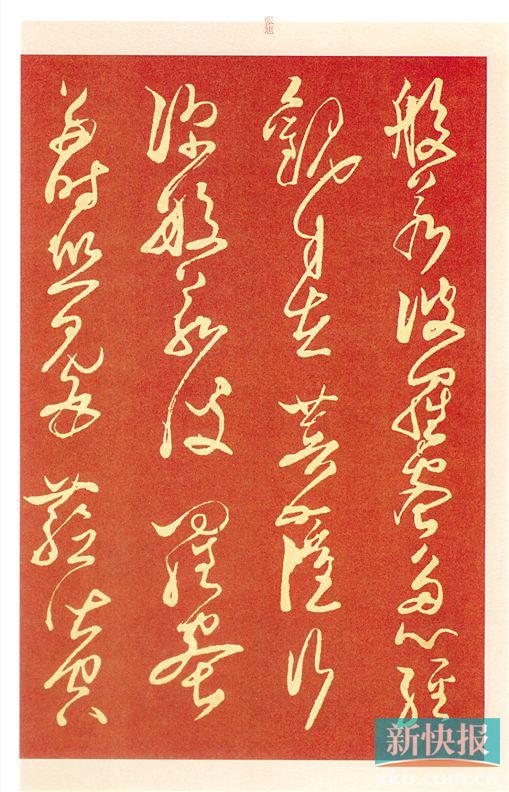 張旭
般若波羅蜜多心經
觀自在菩薩行
深般若波羅蜜
多時照見五蘊皆空
新快报
xkb.com.cn